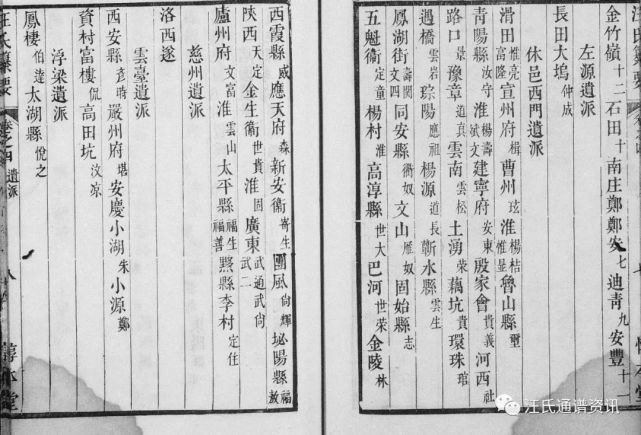 金竹嶺十二石田十南庄鄭鄭安七迪青九安豐十二
左源遺派
長田大塢仲成
休邑西門遺派
滑田惟亮高隆宣州府楫曹州玹淮楊桔惟显魯山縣璽
青陽縣汝守淮楊壽斌文建寧府安東殷家會貴義河西社
路口景豫章道真雲南雲松土湧榮藕坑貴環珠琯
遇橋雲岩琮陽應祖楊源道長蘄水縣雲生
鳳湖街壽閑文四同安縣衡奴文山雁奴固始縣志
五魁衛定童楊村淮高淳縣世大巴河世榮金陵林
西霞縣威應天府森新安衛寄生團風尚輝祕陽縣福敖
陝西天定金生衛世賁淮固廣東武通武尚武二
廬州府文富淮雲山太平縣福生福善黟縣李村定住
慈州遺派
洛西遂
雲臺遺派
西安縣彥時嚴州府堪安慶小湖朱小源鄭
資村富樓侃高田坑汶凉
浮梁遺派
鳳棲伯達太湖縣悅之
汪氏纂要 卷之四 遺派 八
汪氏通谱资讯